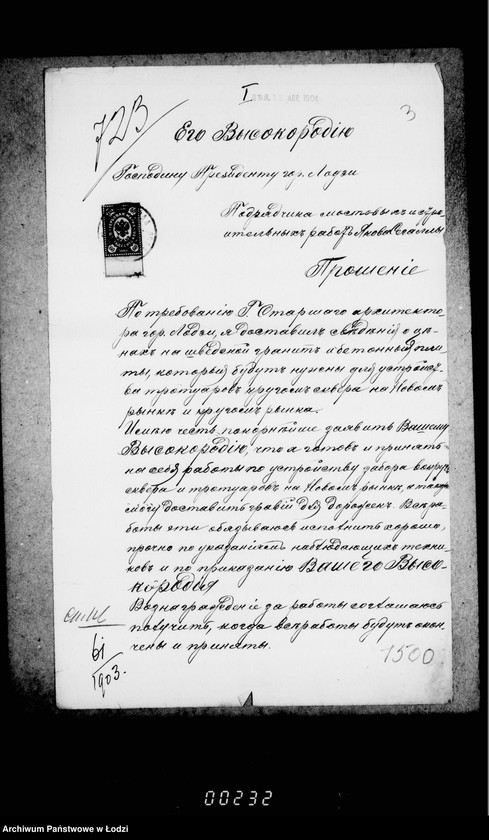 I
3
723
Его Высокородію
Господину Президенту гор. Лодзи
Подрядчика мостовыхъ и стро-
ительныхъ работъ Якова
Прошеніе
По требованію Г. Старшаго архитекто-
ра гор. Лодзи, я доставилъ свѣдѣнія о цѣ-
нахъ на шведскій гранитъ и бетонныя пли-
ты, который будутъ нужны для устройст-
ва тротуаровъ кругомъ сквера на Новомъ
рынкѣ и кругомъ рынка.
Имѣю честь покорнѣйше заявить Вашему
Высокородію, что я готовъ и принять
на себя работы по устройству забора вокругъ
сквера и тротуаровъ на Новомъ рынкѣ, а также
могу доставить гравій для дорожекъ. Всѣ ра-
боты эти обязываюсь исполнить хорошо,
прочно по указаніямъ наблюдающихъ техни-
ковъ и по приказанію Вашего Высо-
кородія
Вознагражденіе за работы соглашаюсь
получить, когда всѣ работы будутъ окон-
чены и приняты.
1903.
1500
00232
Archiwum Państwowe w Łodzi